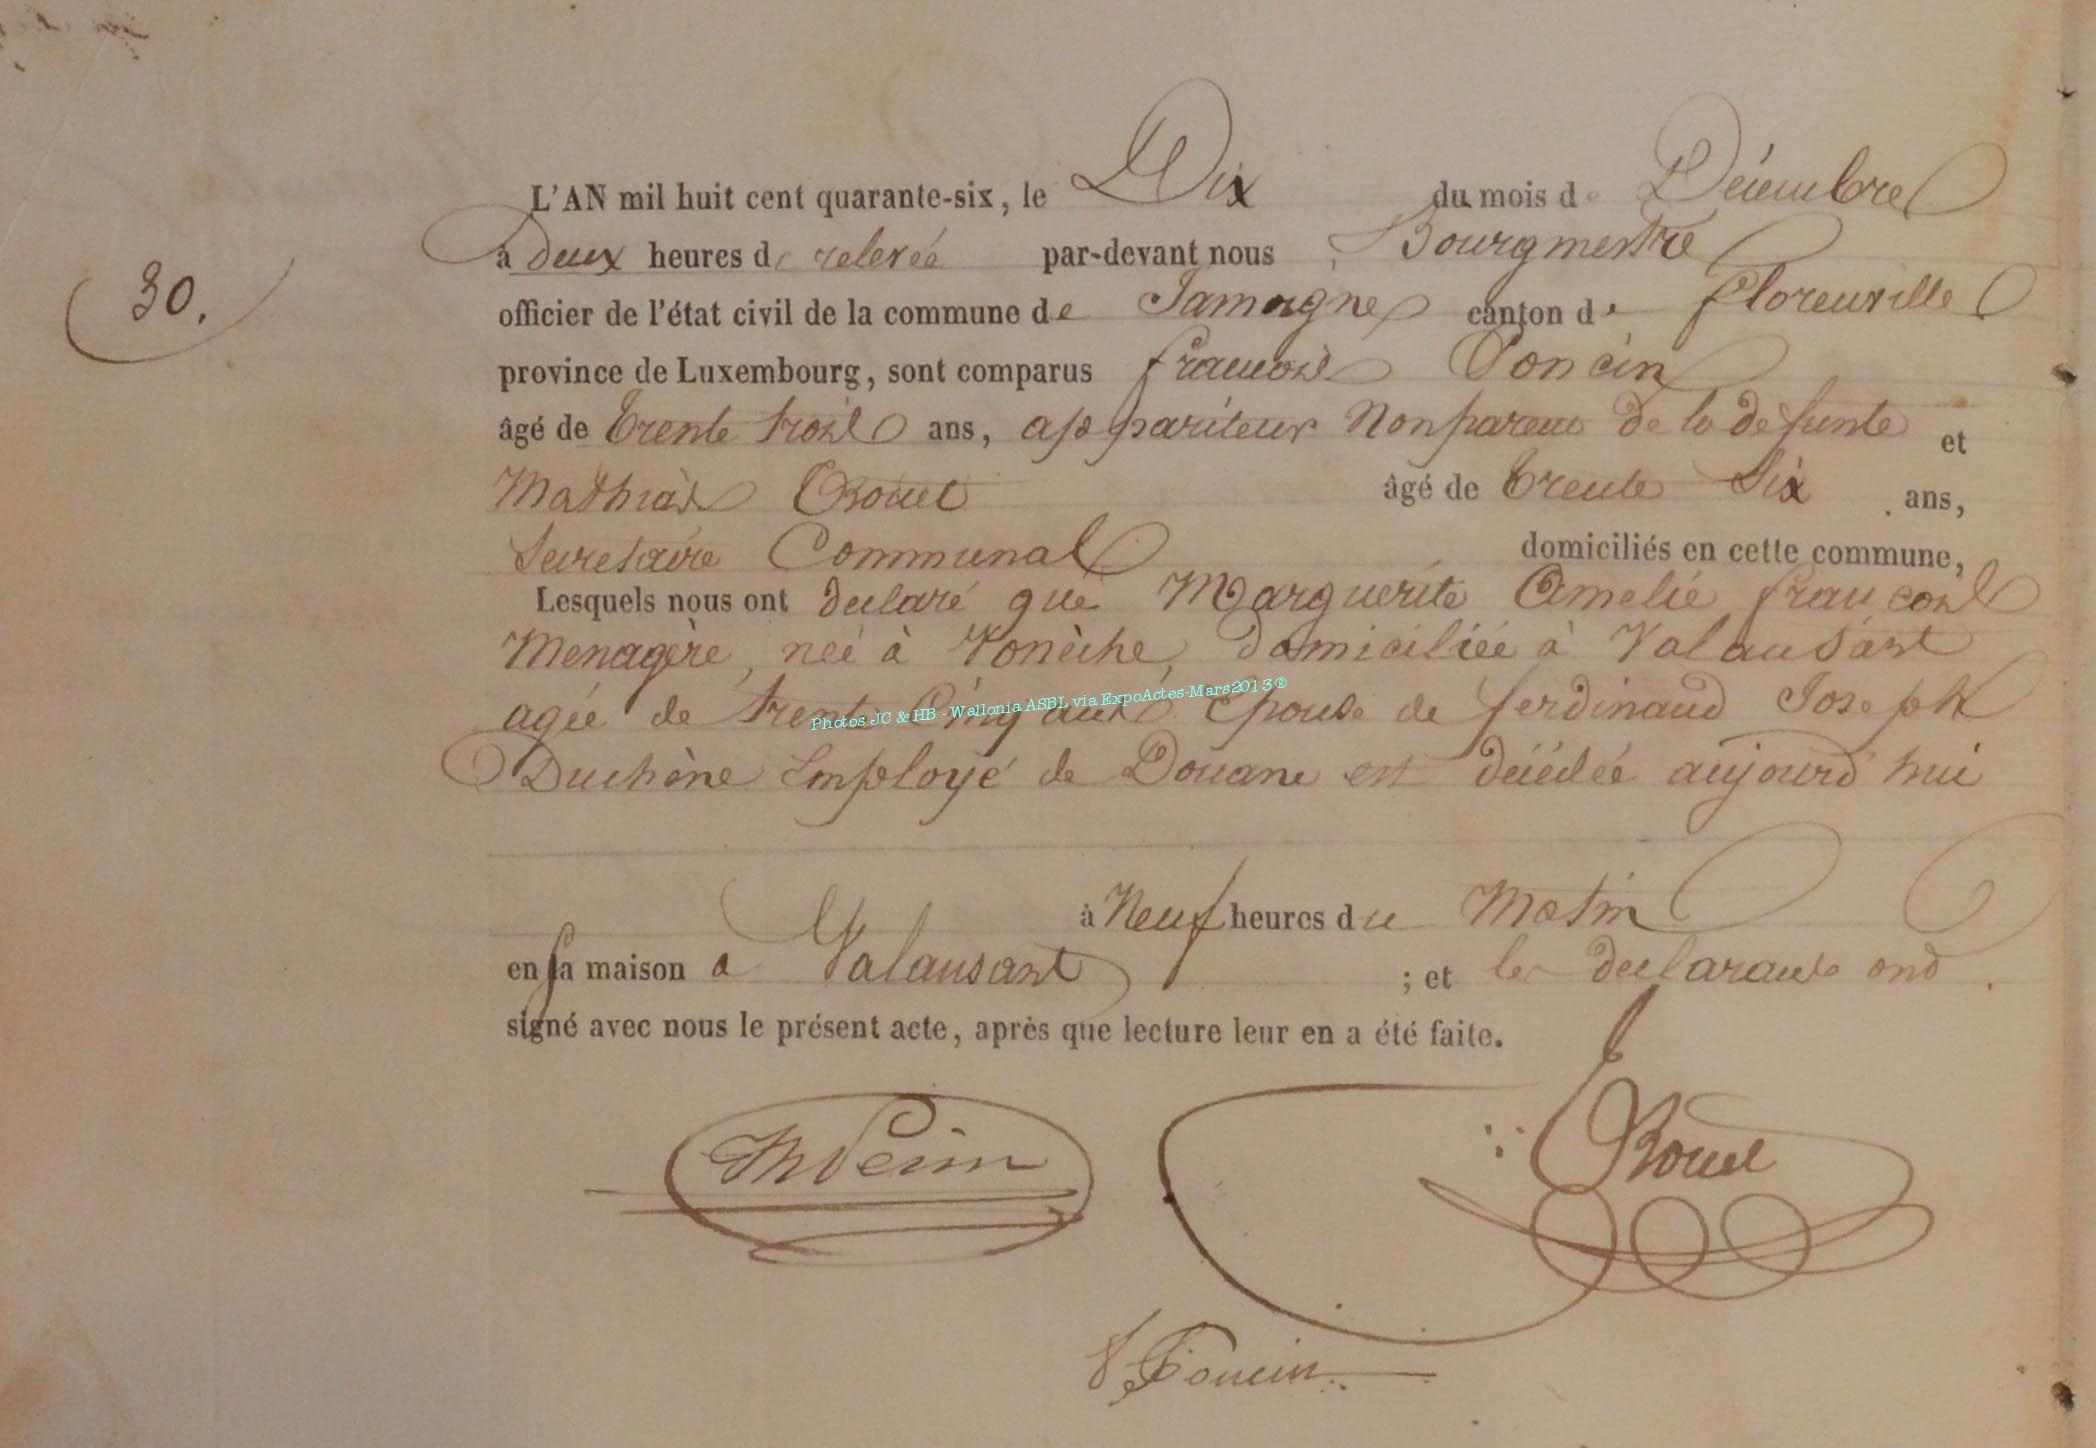 L'AN mil huit cent quarante-six, le Dix du mois de Décembre
à Deux heures de relevée par-devant nous Bourgmestre
30.
officier de l'état civil de la commune de Jamoigne canton de florenville
province de Luxembourg, sont comparus francois Poncin
âgé de Trente trois ans, appariteur Non parent de la défunte et
Mathias âgé de Trente Six ans,
Secretaire Communal domiciliés en cette commune,
Lesquels nous ont declaré que Marguerite Amelie francois
Menagère, née à Vonèche, domiciliée à Valansart
agée de trente Cinq ans épouse de ferdinand Joseph
Photos JC & HB - Wallonia ASBL via ExpoActes-Mars2013®
Duchène Employé de Douane est décédée aujourd'hui
à Neuf heures du Matin
en sa maison a Valansart ; et les declarants ont
signé avec nous le présent acte, après que lecture leur en a été faite.
f Poncin